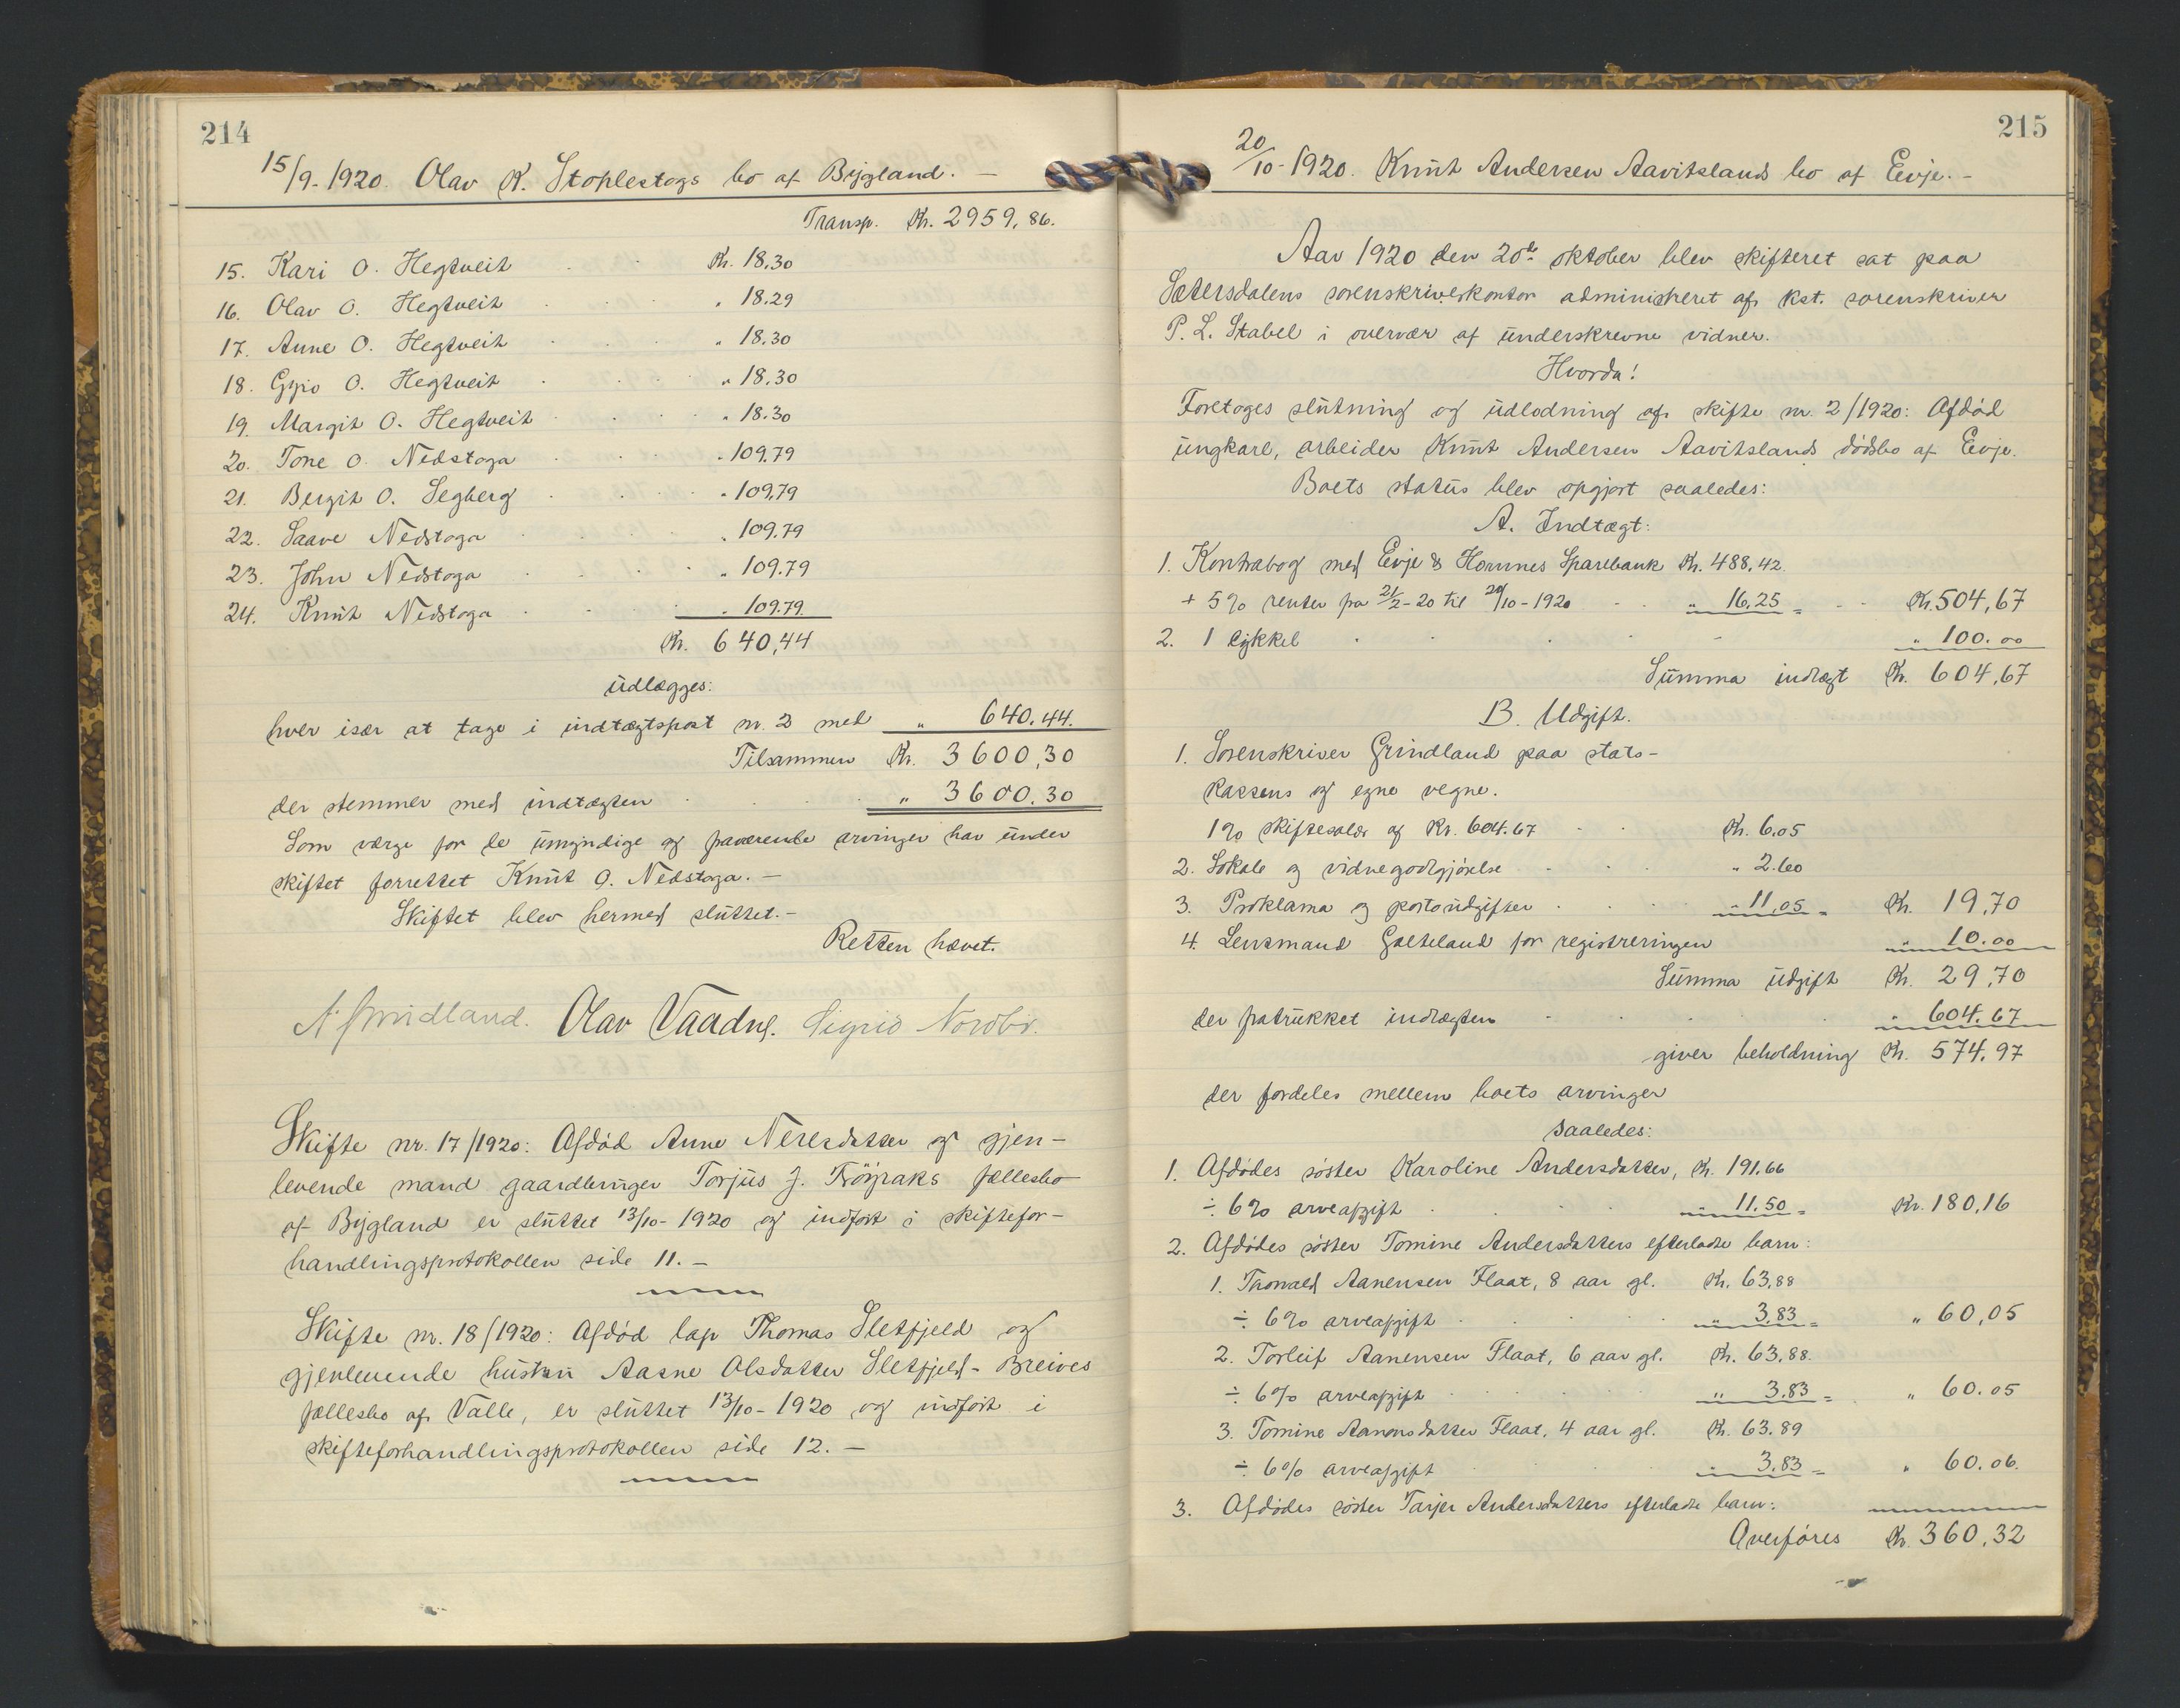 214
15/9-1920. Olav K. Stoplestogs bo af Bygland. —
Transp. Kr. 2959,86.
15. Kari O. Hegtveit Kr. 18.30
16. Olav O. Hegtveit " 18.29
17. Anne O. Hegtveit " 18.30
18. Gyro O. Hegtveit " 18.30
19. Margit O. Hegtveit " 18.30
20. Tone O. Nedstoga " 109.79
21. Bergit O. Legberg " 109.79
22. Saave Nedstoga " 109.79
23. John Nedstoga " 109.79
24. Knut Nedstoga " 109.79
Kr. 640,44
udlægges:
hver især at tage i indtægtspost nr. 2 med " 640.44.
Tilsammen Kr. 3600,30
der stemmer med indtægten " 3600.30
Som værge for de umyndige og fraværende arvinger har under
skiftet forrettet Knut O. Nedstoga. —
Skiftet blev hermed sluttet. —
Retten hævet.
N. Grindland. Olav Vaadne. Sigrid Nordbø.
Skifte nr. 17/1920: Afdød Anne Neresdatter og gjen-
levende mand gaardbruger Torjus J. Frøyraks fællesbo
af Bygland er sluttet 13/10-1920 og indført i skiftefor-
handlingsprotokollen side 11. —
Skifte nr. 18/1920: Afdød lap Thomas Sletfjeld og
gjenlevende hustru Aasne Olsdatter Sletfjeld-Breives
fællesbo af Valle, er sluttet 13/10-1920 og indført i
skifteforhandlingsprotokollen side 12. —
215
20/10-1920. Knut Andersen Aavitslands bo af Evje. —
Aar 1920 den 20de oktober blev skifteret sat paa
Sætersdalens sorenskriverkontor administreret af kst. sorenskriver
P. L. Stabel i overvær af underskrevne vidner.
Hvorda!
Foretoges slutning og udlodning af skifte nr. 2/1920: Afdød
ungkarl, arbeider Knut Andersen Aavitslands dødsbo af Evje.
Boets status blev opgjort saaledes:
A. Indtægt:
1. Kontrabog med Evje & Hornnes Sparebank Kr. 488,42
+ 5% renter fra 21/2-20 til 20/10-1920 " 16,25 = Kr. 504,67
2. 1 cykkel " 100.00
Summa indtægt Kr. 604,67
B. Udgift.
1. Sorenskriver Grindland paa stats-
kassens og egne vegne.
1% skiftesalær af Kr. 604.67 Kr. 6.05
2. Lokale og vidnegodtgjørelse " 2.60
3. Proklama og portoudgifter " 11,05 = Kr. 19,70
4. Lensmand Galteland for registreringen " 10.00
Summa udgift Kr. 29,70
der fratrukket indtægten " 604.67
giver beholdning Kr. 574.97
der fordeles mellem boets arvinger
saaledes:
1. Afdødes søster Karoline Andersdatter, Kr. 191.66
÷ 6% arveafgift " 11.50 = Kr. 180,16
2. Afdødes søster Tomine Andersdatters efterladte barn:
1. Thorvald Aanensen Flaat, 8 aar gl. Kr. 63,88
÷ 6% arveafgift " 3,83 = " 60,05
2. Torleif Aanensen Flaat, 6 aar gl. Kr. 63,88.
÷ 6% arveafgift " 3,83 = " 60.05
3. Tomine Aanonsdatter Flaat, 4 aar gl. Kr. 63.89
÷ 6% arveafgift " 3.83 = " 60.06.
3. Afdødes søster Tarjer Andersdatters efterladte barn:
Overføres Kr. 360,32